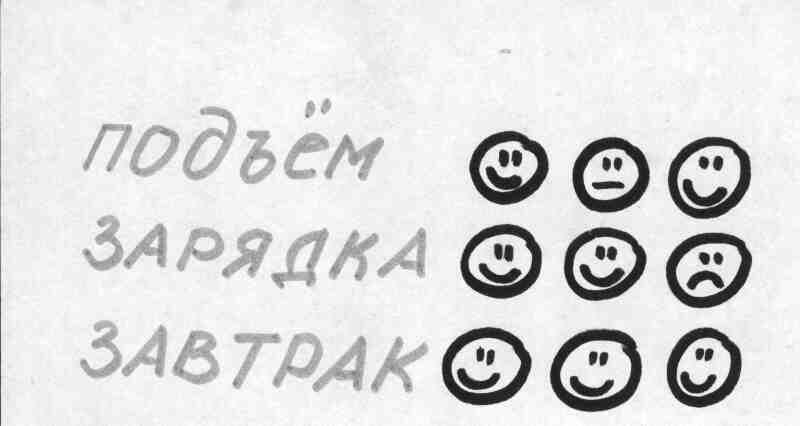 ПОДЪЁМ
ЗАРЯДКА
ЗАВТРАК